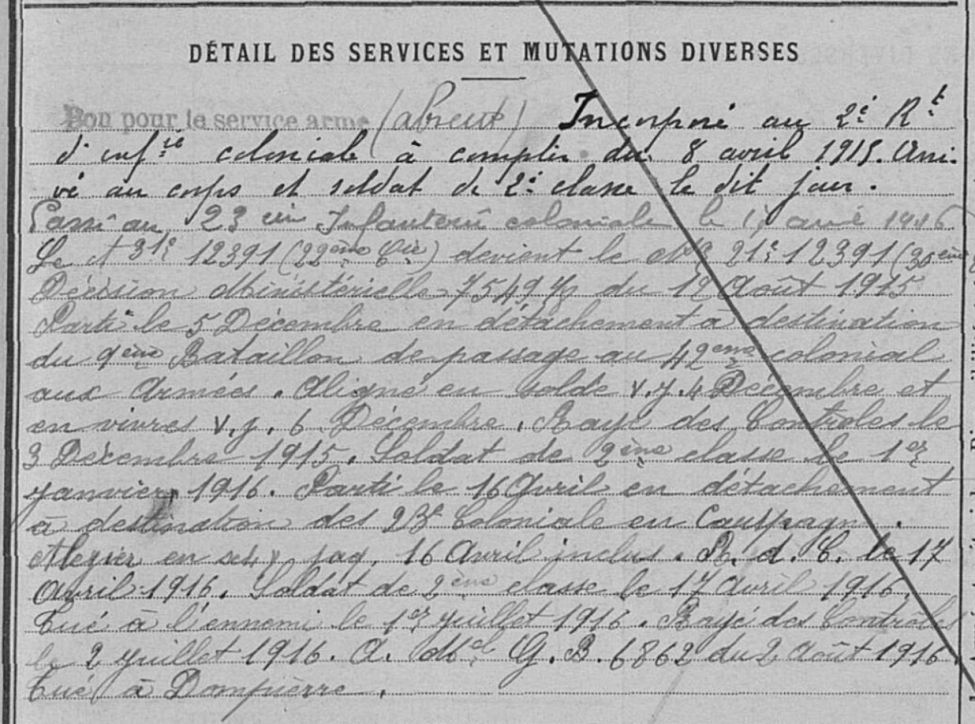 DÉTAIL DES SERVICES ET MUTATIONS DIVERSES
Bon pour le service armé (absent) Incorporé au 2e Rt
d'infrie coloniale à compter du 8 avril 1915. Arri-
vé au corps et soldat de 2e classe le dit jour.
Passé au 23 ème Infanterie coloniale le 17 avril 1916
Le 12391 (22ème Cie) devient le 12391
Décision Ministérielle du 12 Août 1915
Parti le 5 Décembre en détachement à destination
du 9ème Bataillon de passage au 42ème colonial
aux Armées. Aligné en solde v.j. 4 Décembre et
en vivres v.j. 6 Décembre. Rayé des Contrôles le
3 Décembre 1915. Soldat de 2ème classe le 1er
Janvier 1916. Parti le 16 Avril en détachement
à destination des 23e Coloniale en
en 16 Avril inclus. R. d. C. le 17
Avril 1916. Soldat de 2ème classe le 17 Avril 1916.
Tué à l'ennemi le 1er Juillet 1916. Rayé des Contrôles
le 2 Juillet 1916. A. Mel G. B. 6862 du 2 Août 1916.
Tué à Dompierre.